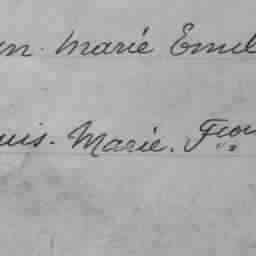 en. Marie Emil
uis. Marie. Fco